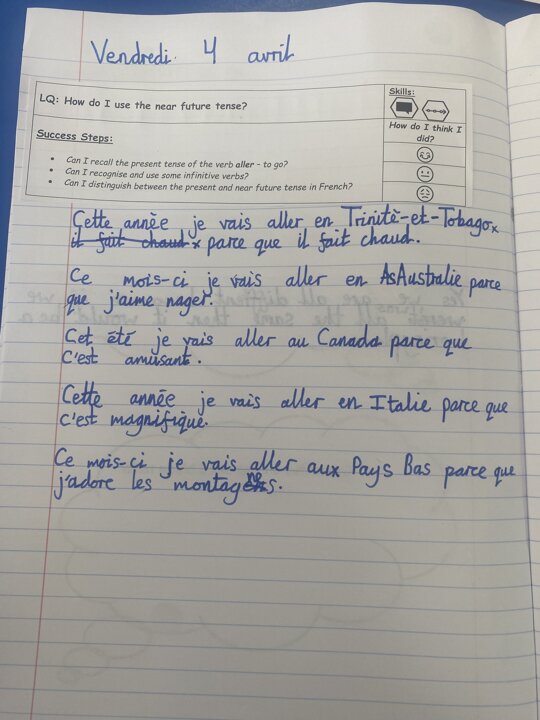 Vendredi 4 avril
LQ: How do I use the near future tense?
Skills:
How do I think I did?
Success Steps:
• Can I recall the present tense of the verb aller - to go?
• Can I recognise and use some infinitive verbs?
• Can I distinguish between the present and near future tense in French?
Cette annèe je vais aller en Trinitè-et-Tobago
il fait chaud parce que il fait chaud.
Ce mois-ci je vais aller en AsAustralie parce
que j'aime nager.
Cet été je vais aller au Canada parce que
C'est amusant.
Cette année je vais aller en Italie parce que
c'est magnifique.
Ce mois-ci je vais aller aux Pays Bas parce que
j'adore les